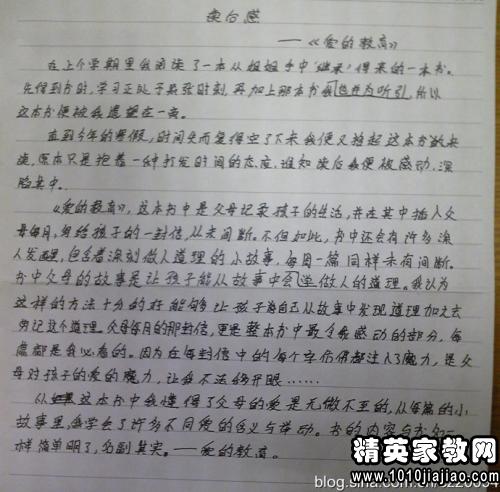 读后感
——《爱的教育》
在上个学期里我阅读了一本从姐姐手中"继承"得来的一本书。
先得到书时,学习正处于紧张时刻,再加上那本书我也并为所引,所以
这本书便被我遗望在一旁。
直到今年的寒假,时间失而复得空了下来我便又拾起这本书
读,原本只是抱着一种打发时间的态度,谁知读后我便被感动,深
陷其中。
《爱的教育》,这本书中是父母记录孩子的生活,并在其中插入父
母每月,男给孩子的一封信,从未间断。不但如此,书中还会有许多深
人发醒,包含着深刻做人道理的小故事,每月一篇同样未有间断。
书中父母的故事是让孩子能从故事中会学做人的道理。我认为
这样的方法十分的好能够让孩子自己从故事中发现道理加之去
牢记这个道理。父母每月的那封信,更是整本书中最令我感动的部分,每
篇都是我必看的。因为在每封信中的每个字仿佛都注入了魔力,是父
母对孩子的爱的魔力,让我不法移开眼……
从这本书中我懂得了父母的爱是无微不至的,从每篇的小
故事里,我学会了许多不同爱的含义与举动。书的内容与书如一
样简单明了,名副其实。——爱的教育。
精英家教网
www.1010jiajiao.com
blog.sina.com.cn